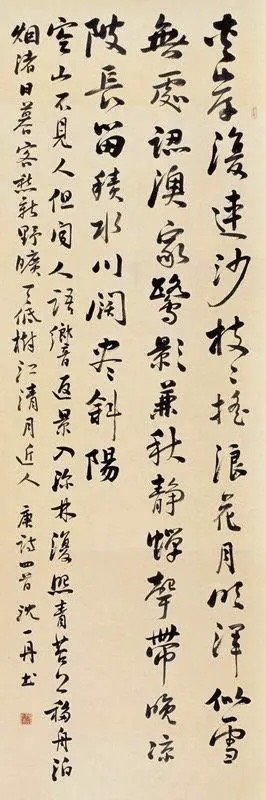 夾岸復連沙枝々搖浪花月明渾似雪
無處認漁家鷺影兼秋静蟬聲帶晚凉
陂長留積水川闊盡斜陽
空山不見人但聞人語響返景入深林復照青苔上移舟泊
烟渚日暮客愁新野曠天低樹江清月近人 唐詩四首 沈一丹书